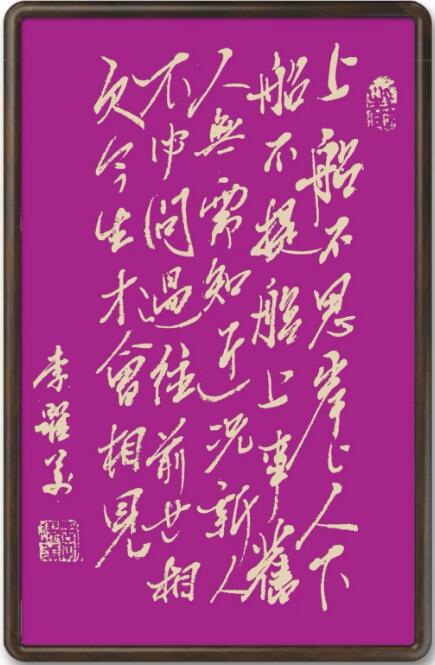 上船不思岸上人下
船不提船上事舊
人無需知近況新人
不問過往前世相
欠今生才會相見
李躍